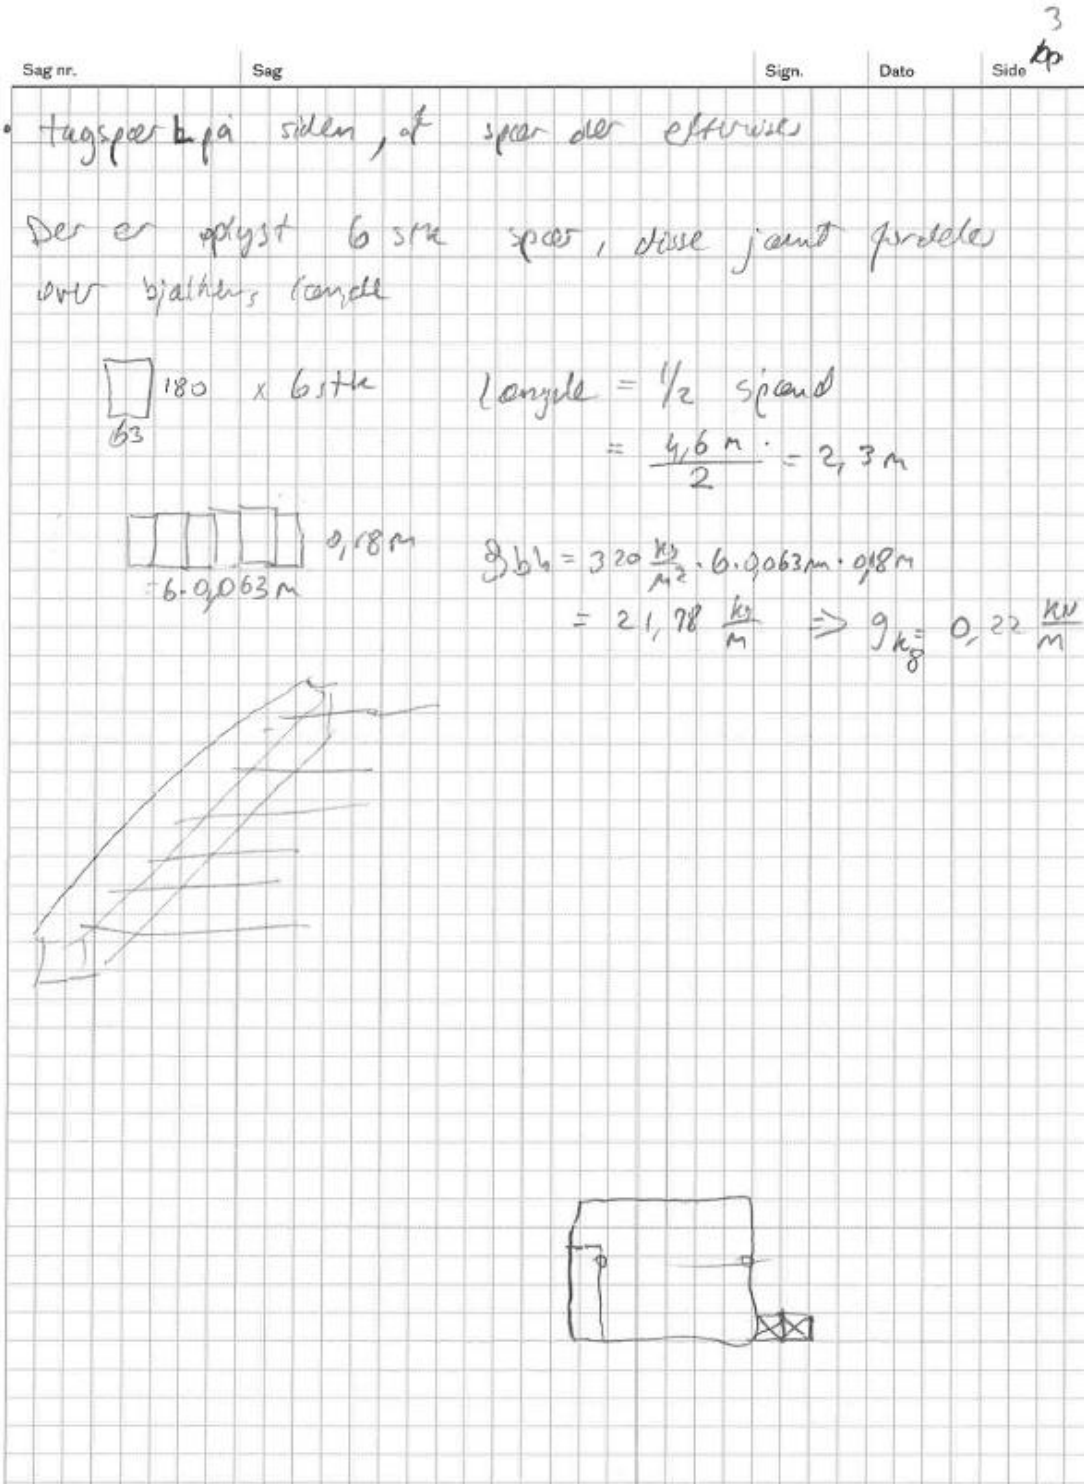 3
Sag nr. Sag Sign. Dato Side
• tagspær på siden, af spær der eftervises
Der er oplyst 6 stk spær, disse jævnt fordeles
over bjælkens længde
180 x 6 stk
63
Længde = 1/2 spænd
= 4,6 m / 2 = 2,3 m
0,18 m
= 6·0,063 m
gbh = 320 kg/m² · 6·0,063 m · 0,18 m
= 21,78 kg/m => gk8 = 0,22 kN/m